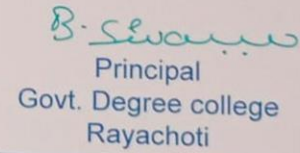 B. Sivanna
Principal
Govt. Degree college
Rayachoti